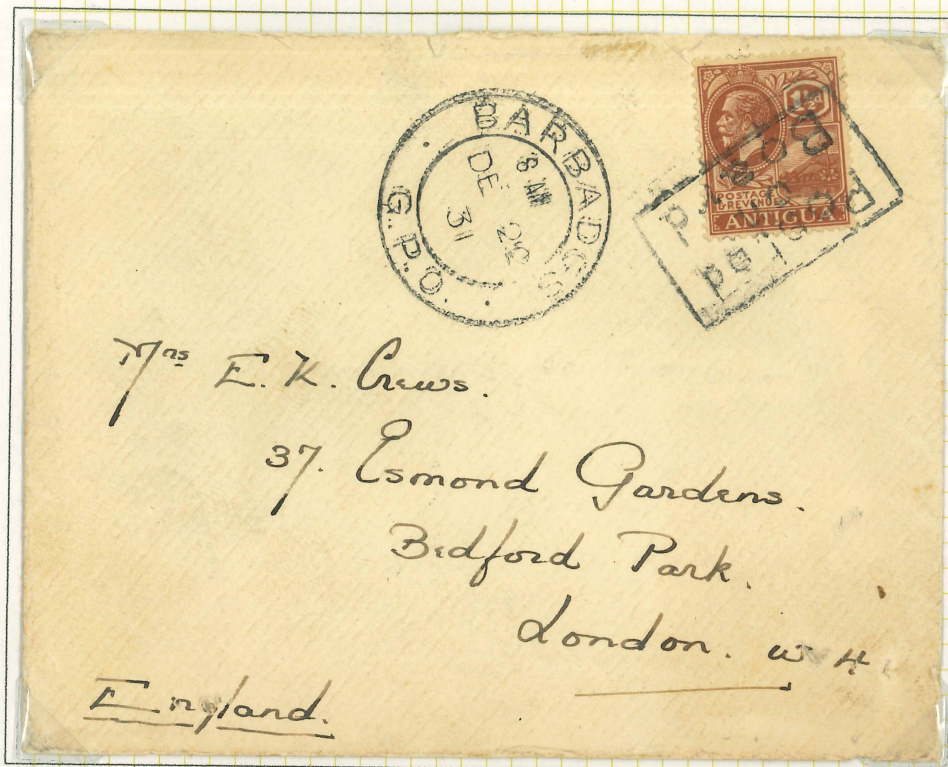 BARBADOS
8 AM
DE 22
31
G.P.O.
1½d
POSTAGE
& REVENUE
ANTIGUA
Mrs E. K. Crews.
37. Esmond Gardens.
Bedford Park.
London. W 4
England.